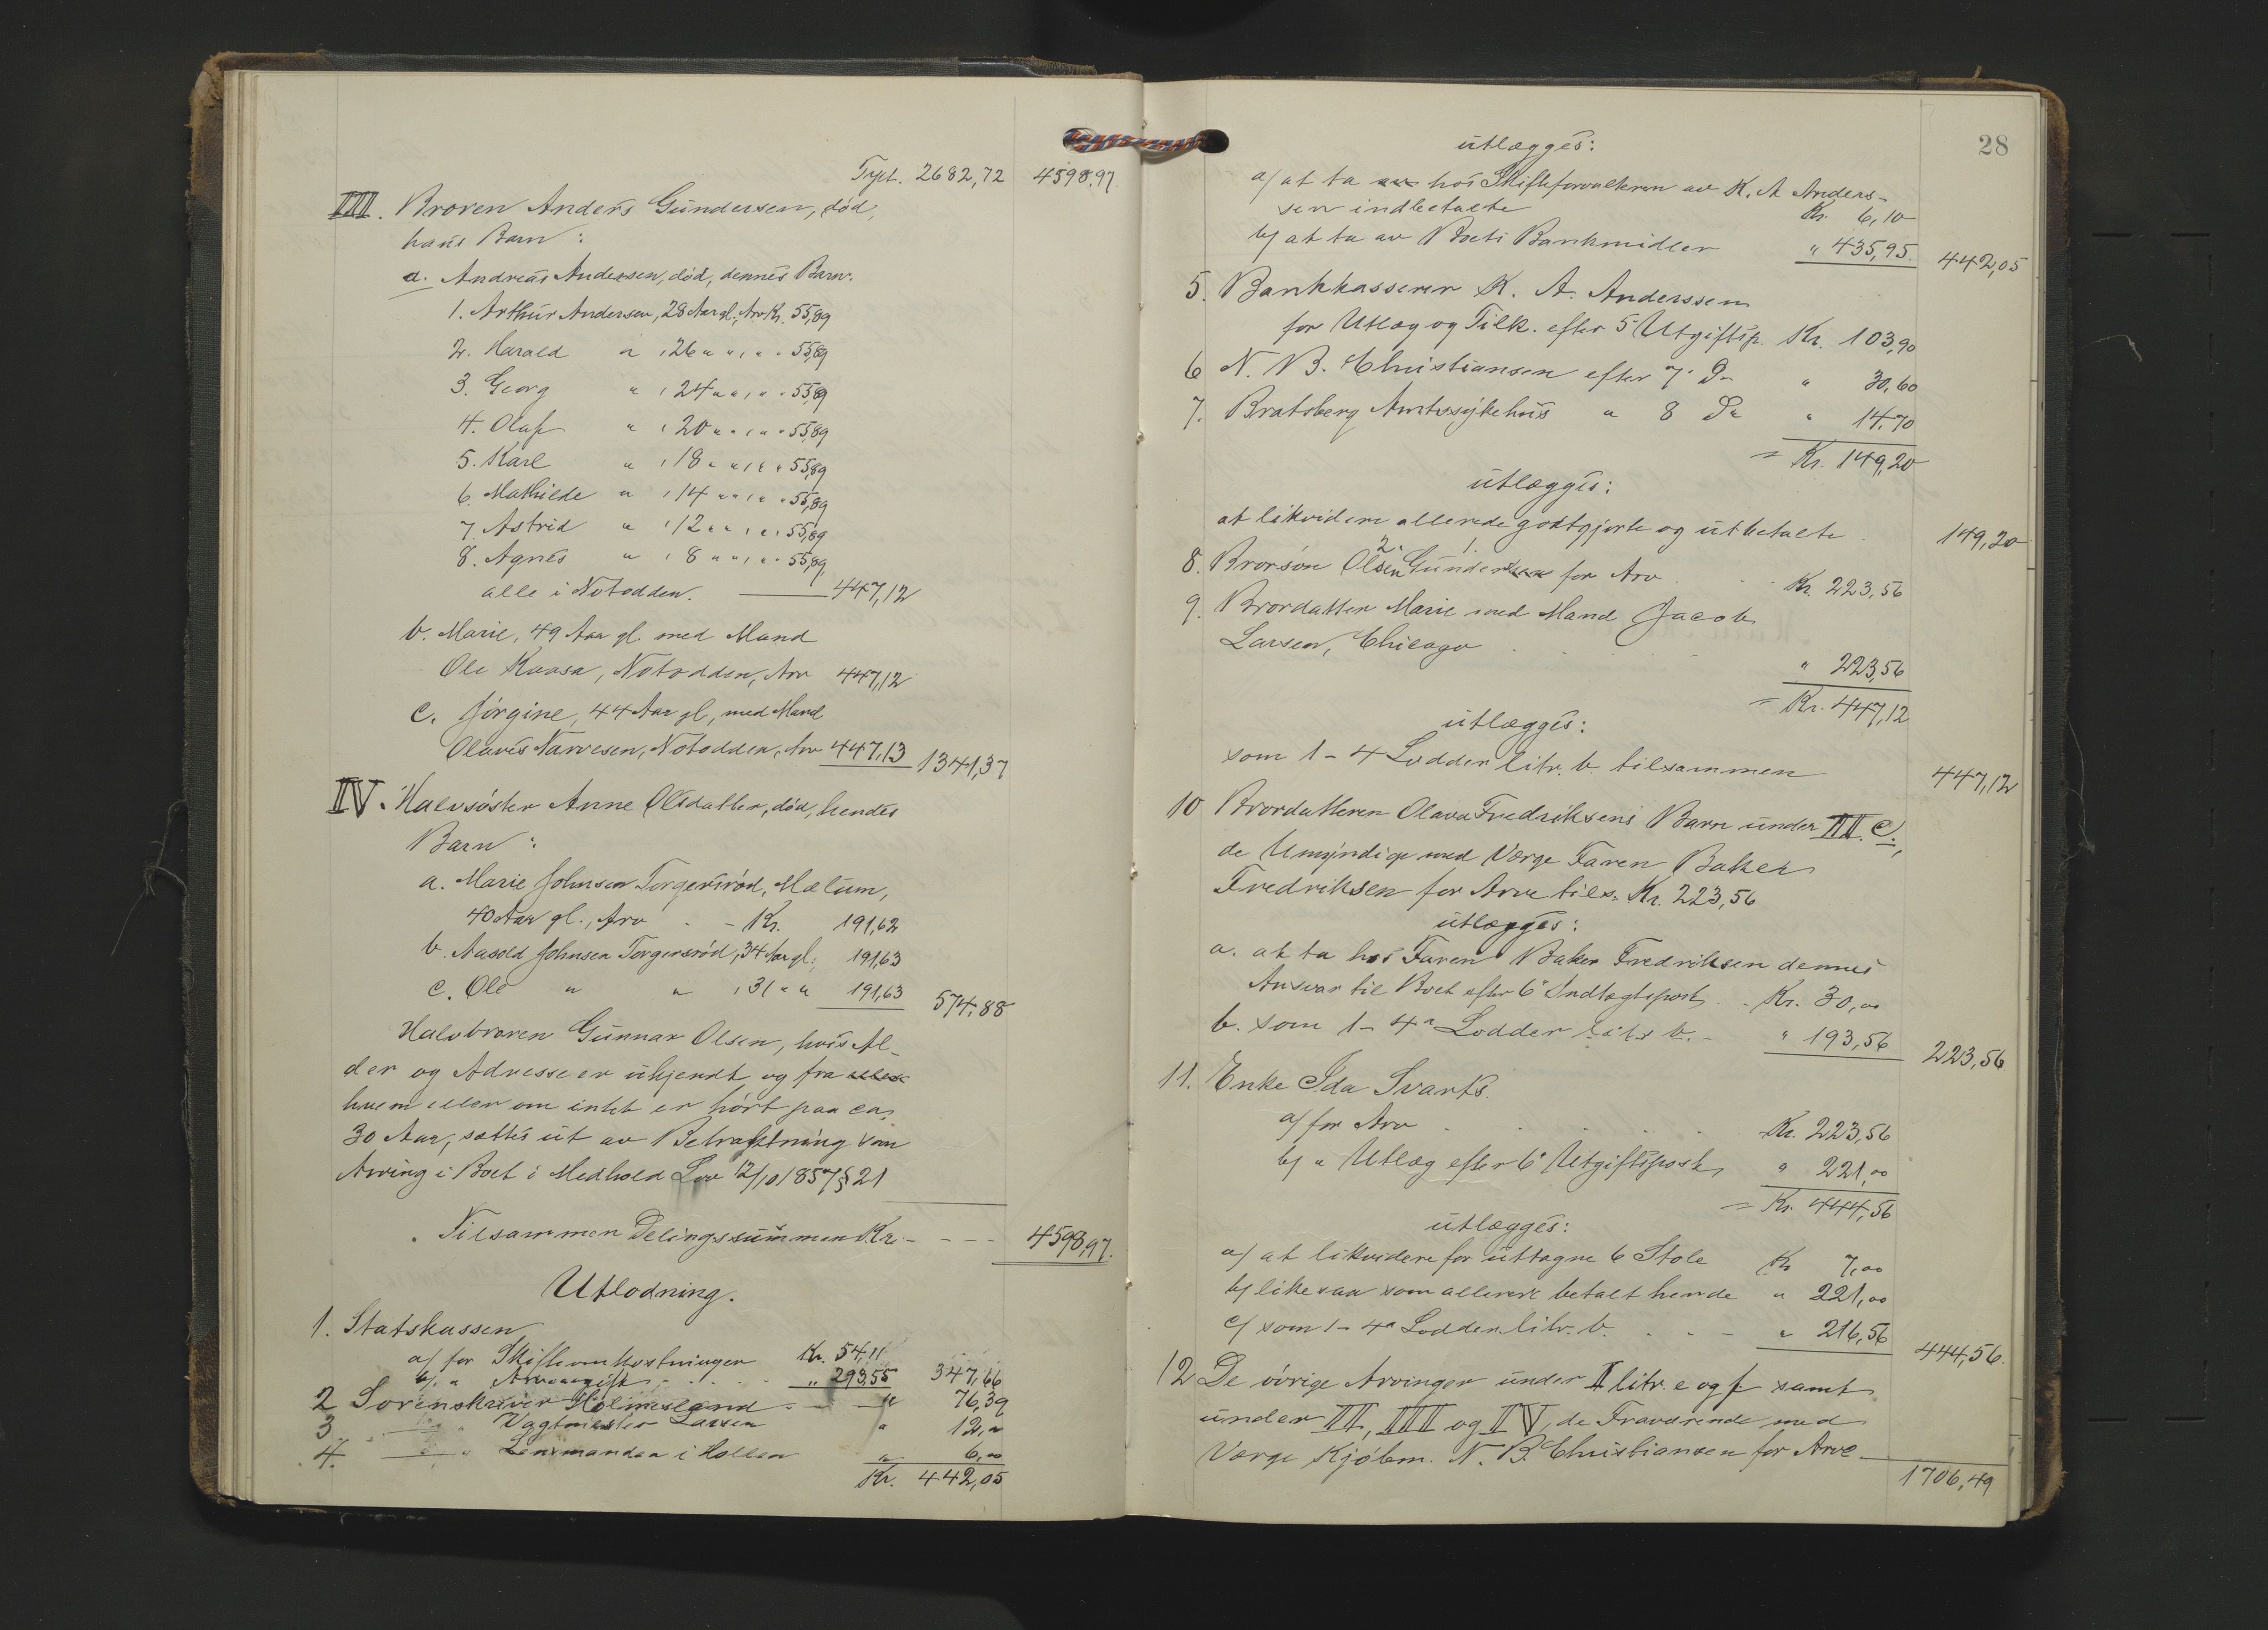 Trpt. 2682,72 4598,97
III. Broren Anders Gundersen, død,
hans Barn:
a. Andreas Andersen, død, dennes Barn:
1. Arthur Andersen, 28 Aar gl., Arv Kr. 55,89
2. Harald " , 26 " " , " " 55,89
3. Georg " , 24 " " , " " 55,89
4. Olaf " , 20 " " , " " 55,89
5. Karl " , 18 " " , " " 55,89
6. Mathilde " , 14 " " , " " 55,89
7. Astrid " , 12 " " , " " 55,89
8. Agnes " , 8 " " , " " 55,89
alle i Notodden. 447,12
b. Marie, 49 Aar gl. med Mand
Ole Kaasa, Notodden, Arv 447,12
c. Jørgine, 44 Aar gl, med Mand
Olaves Narvesen, Notodden, Arv 447,13 1341,37
IV. Halvsøster Anne Olsdatter, død, hendes
Barn:
a. Marie Johnsen Torgersrød, Mælum,
40 Aar gl., Arv - - Kr. 191,62
b. Aasold Johnsen Torgersrød, 34 Aar gl. 191,63
c. Ole " " , 31 " " 191,63 574,88
Halvbroren Gunnar Olsen, hvis Al-
der og Adresse er ukjendt og fra
hvem eller om intet er hørt paa ca.
30 Aar, sættes ut av Betragtning som
Arving i Boet i Medhold Lov 12/10 1857 § 21
Tilsammen Delingssummen Kr. - - - - 4598,97.
Utlodning.
1. Statskassen
a/ for Skifteomkostninger Kr. 54,11
b/. " Arveavgift . . . . " 293,55 347,66
2 Sorenskriver Holmesland - - " 76,39
3 " Vagtmester Larsen " 12,"
4. " Lensmanden i Hollen " 6,00
Kr. 442,05
28
utlægges:
a/ at ta hos Skifteforvalteren av K. A Anders-
sen indbetalte Kr. 6,10
b/ at ta av Boets Bankmidler " 435,95. 442,05
5. Bankkasserer K. A. Anderssen
for Utlæg og Tilk. efter 5' Utgiftsp. Kr. 103,90
6 N. B. Christiansen efter 7' Do " 30,60
7. Bratsberg Amtssykehus " 8 Do " 14,70
= Kr. 149,20
utlægges:
at likvidere allerede godtgjorte og utbetalte . 149,20
2. 1.
8. Brorsøn Olsen Gunder for Arv . . . Kr. 223,56
9. Brordatter Marie med Mand Jacob
Larsen, Chicago . . . . " 223,56
= Kr. 447,12
utlægges:
som 1 - 4 Lodder litr. b. tilsammen 447,12
10 Brordatteren Olava Fredriksens Barn under II. C.,
de Umyndige med Værge Faren Baker
Fredriksen for Arve tils. Kr. 223,56
utlægges:
a. at ta hos Faren Baker Fredriksen dennes
Ansvar til Boet efter 6' Indtægtspost . . Kr. 30,00
b. som 1 - 4" Lodder litr b. - " 193,56 223,56
11. Enke Ida Svarts.
a/ for Arv . . . . . Kr. 223,56
b/ " Utlæg efter 6' Utgiftspost " 221,00
= Kr. 444,56
utlægges:
a/ at likvidere for uttagne 6 Stole Kr 7,00
b/ likesaa som allerede betalt hende " 221,00
c/ som 1 - 4" Lodder litr. b. . . - " 216,56 444,56.
12 De øvrige Arvinger under I litr. e og f samt
under II, III og IV, de Fraværende med
Værge Kjøbm. N. B. Christiansen for Arve -
1706,49